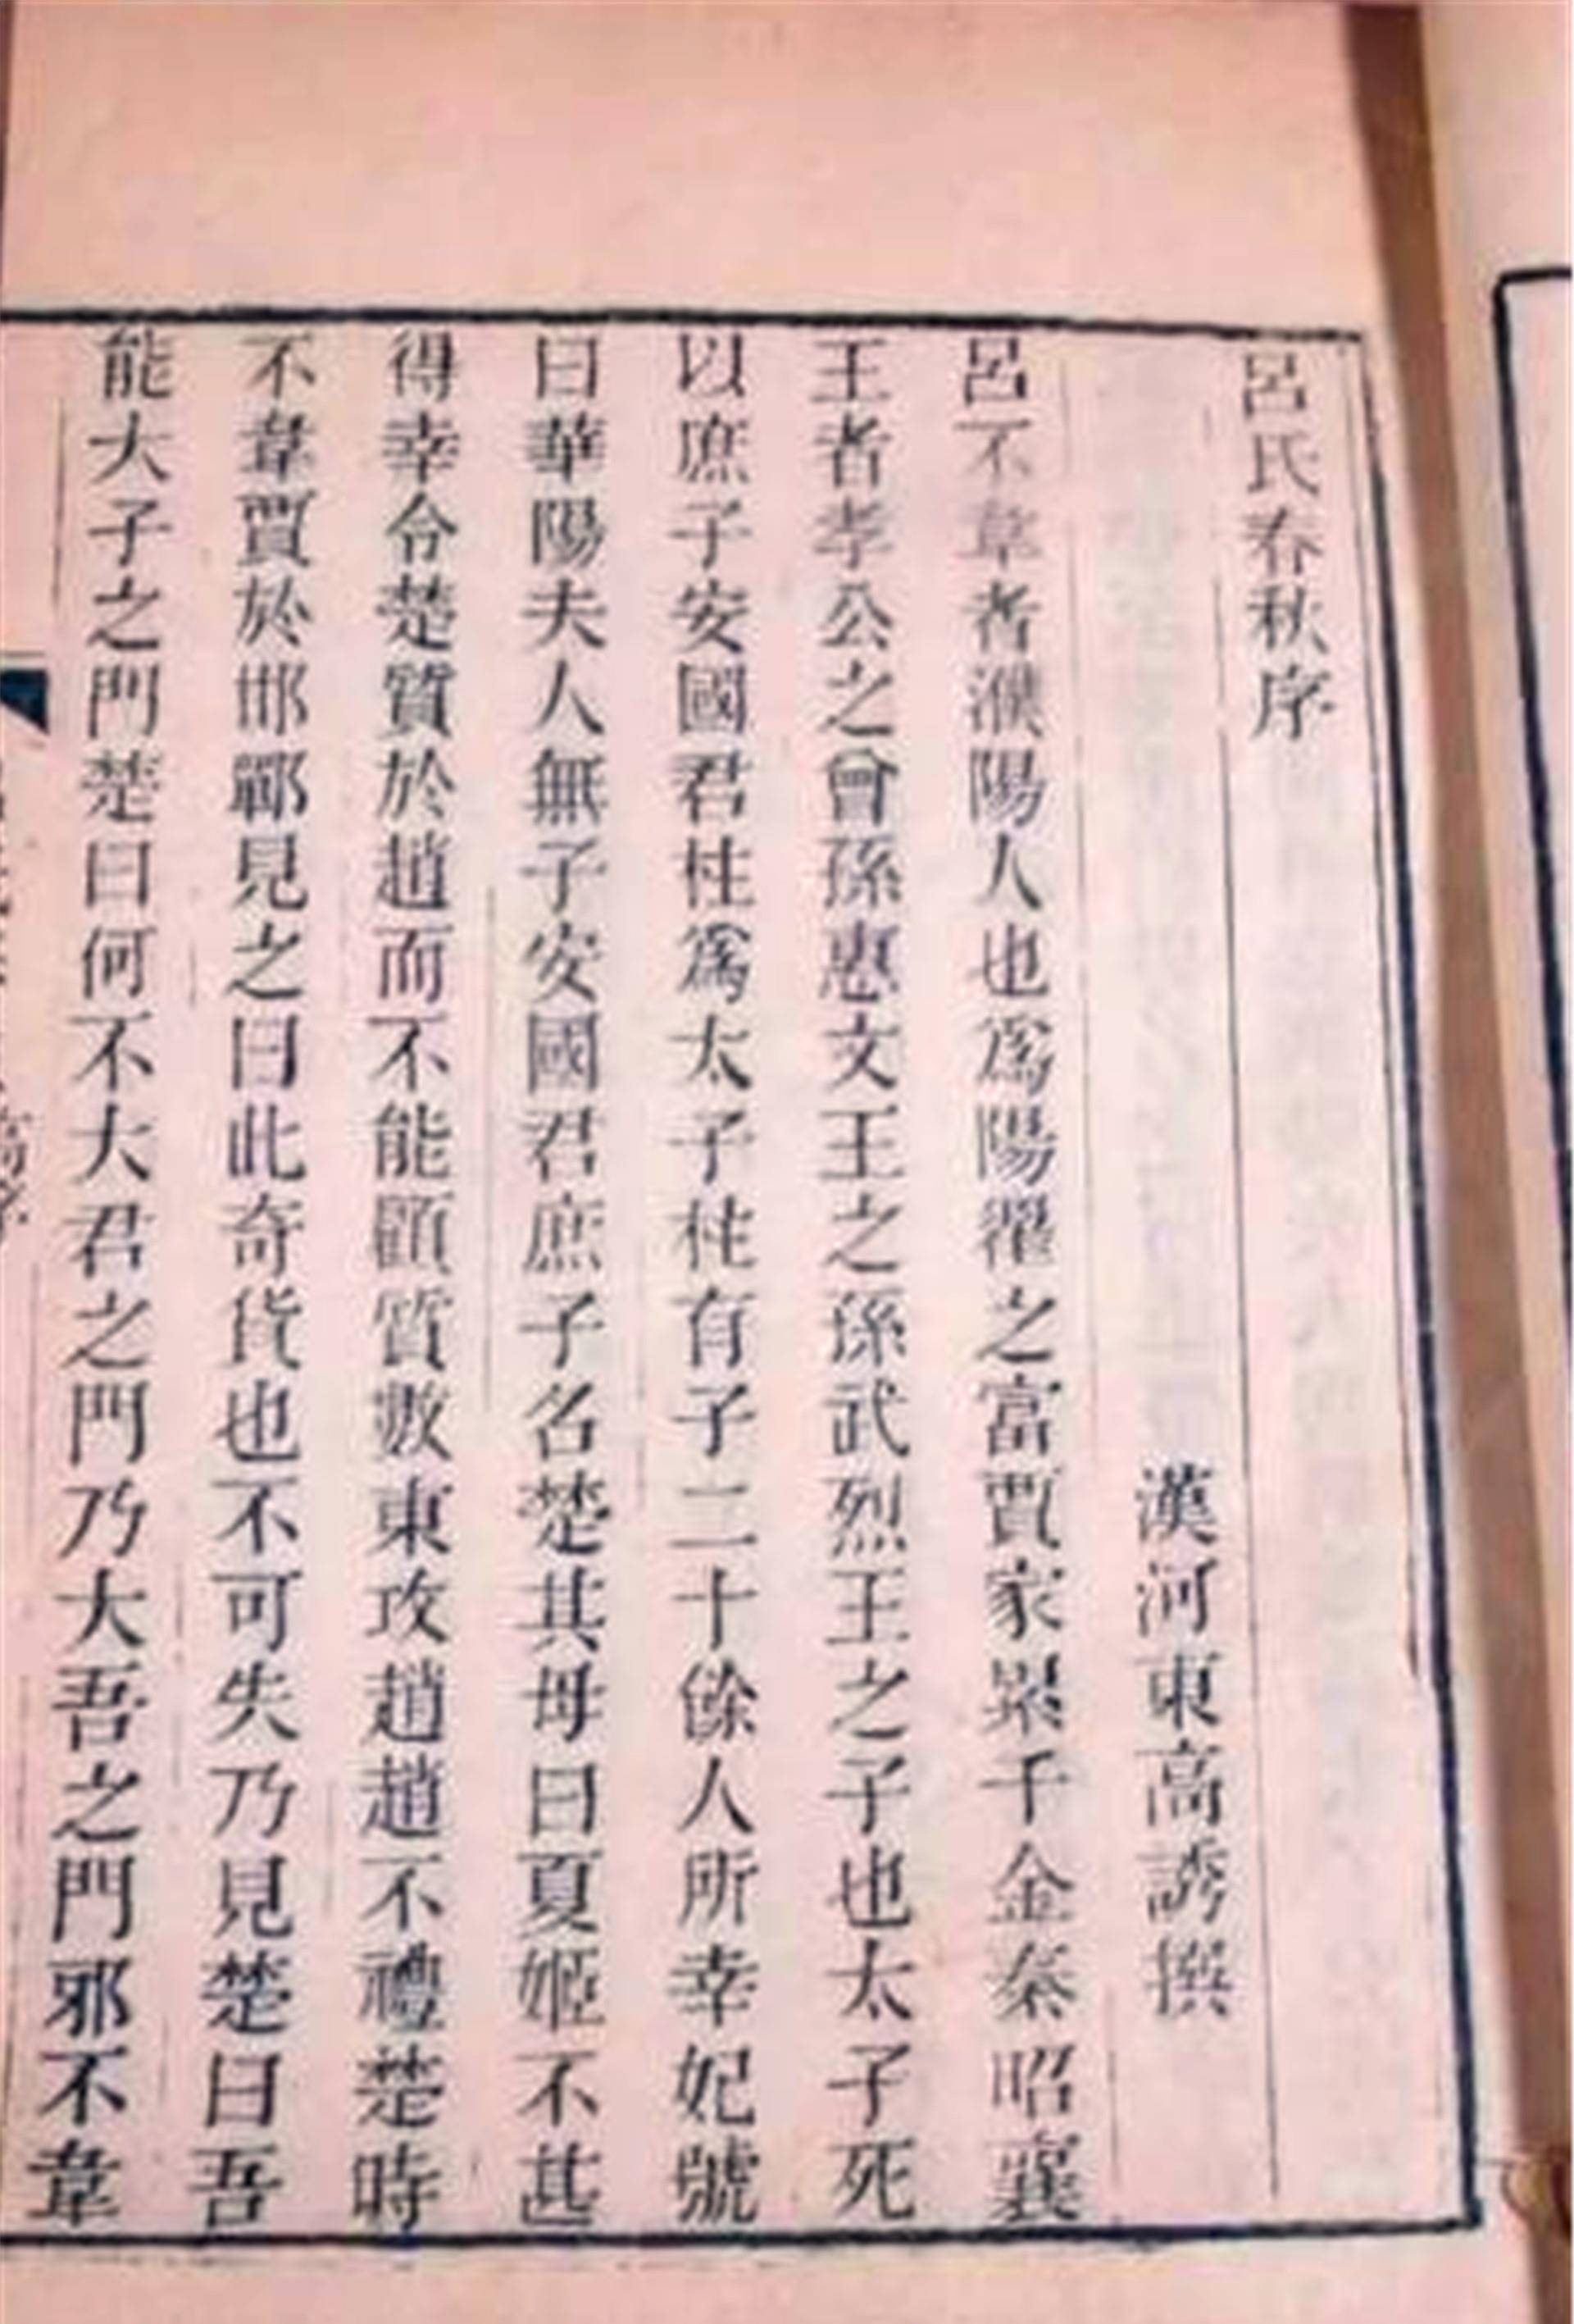 呂氏春秋序
漢河東高誘撰
呂不韋者濮陽人也爲陽翟之富賈家累千金秦昭襄
王者孝公之曾孫惠文王之孫武烈王之子也太子死
以庶子安國君柱爲太子柱有子二十餘人所幸妃號
曰華陽夫人無子安國君庶子名楚其母曰夏姬不甚
得幸令楚質於趙而不能顧質數東攻趙趙不禮楚時
不韋賈於邯鄲見之曰此奇貨也不可失乃見楚曰吾
能大子之門楚曰何不大君之門乃大吾之門邪不韋